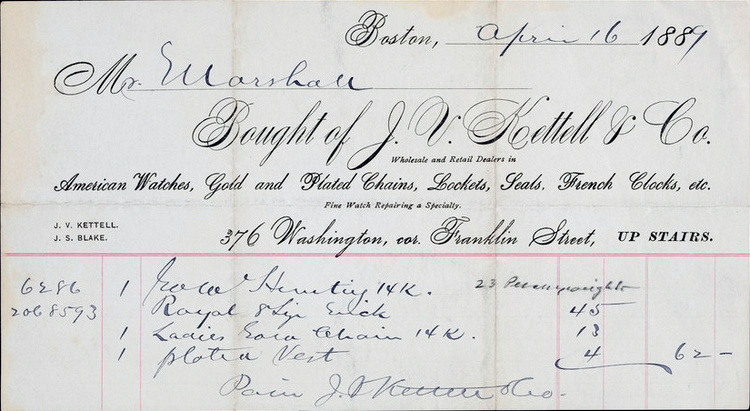 Boston, April 16 1889
Mr. E Marshall
Bought of J. V. Kettell & Co.
Wholesale and Retail Dealers in
American Watches, Gold and Plated Chains, Lockets, Seals, French Clocks, etc.
Fine Watch Repairing a Specialty.
J. V. KETTELL.
J. S. BLAKE.
376 Washington, cor. Franklin Street, UP STAIRS.
6286 1 Gold Hunting 14K. 23 Pennyweights
2068593 Royal 45
1 Ladies Gold Chain 14K. 13
1 plated Vest 4 62 -
Paid J. V Kettell & Co.